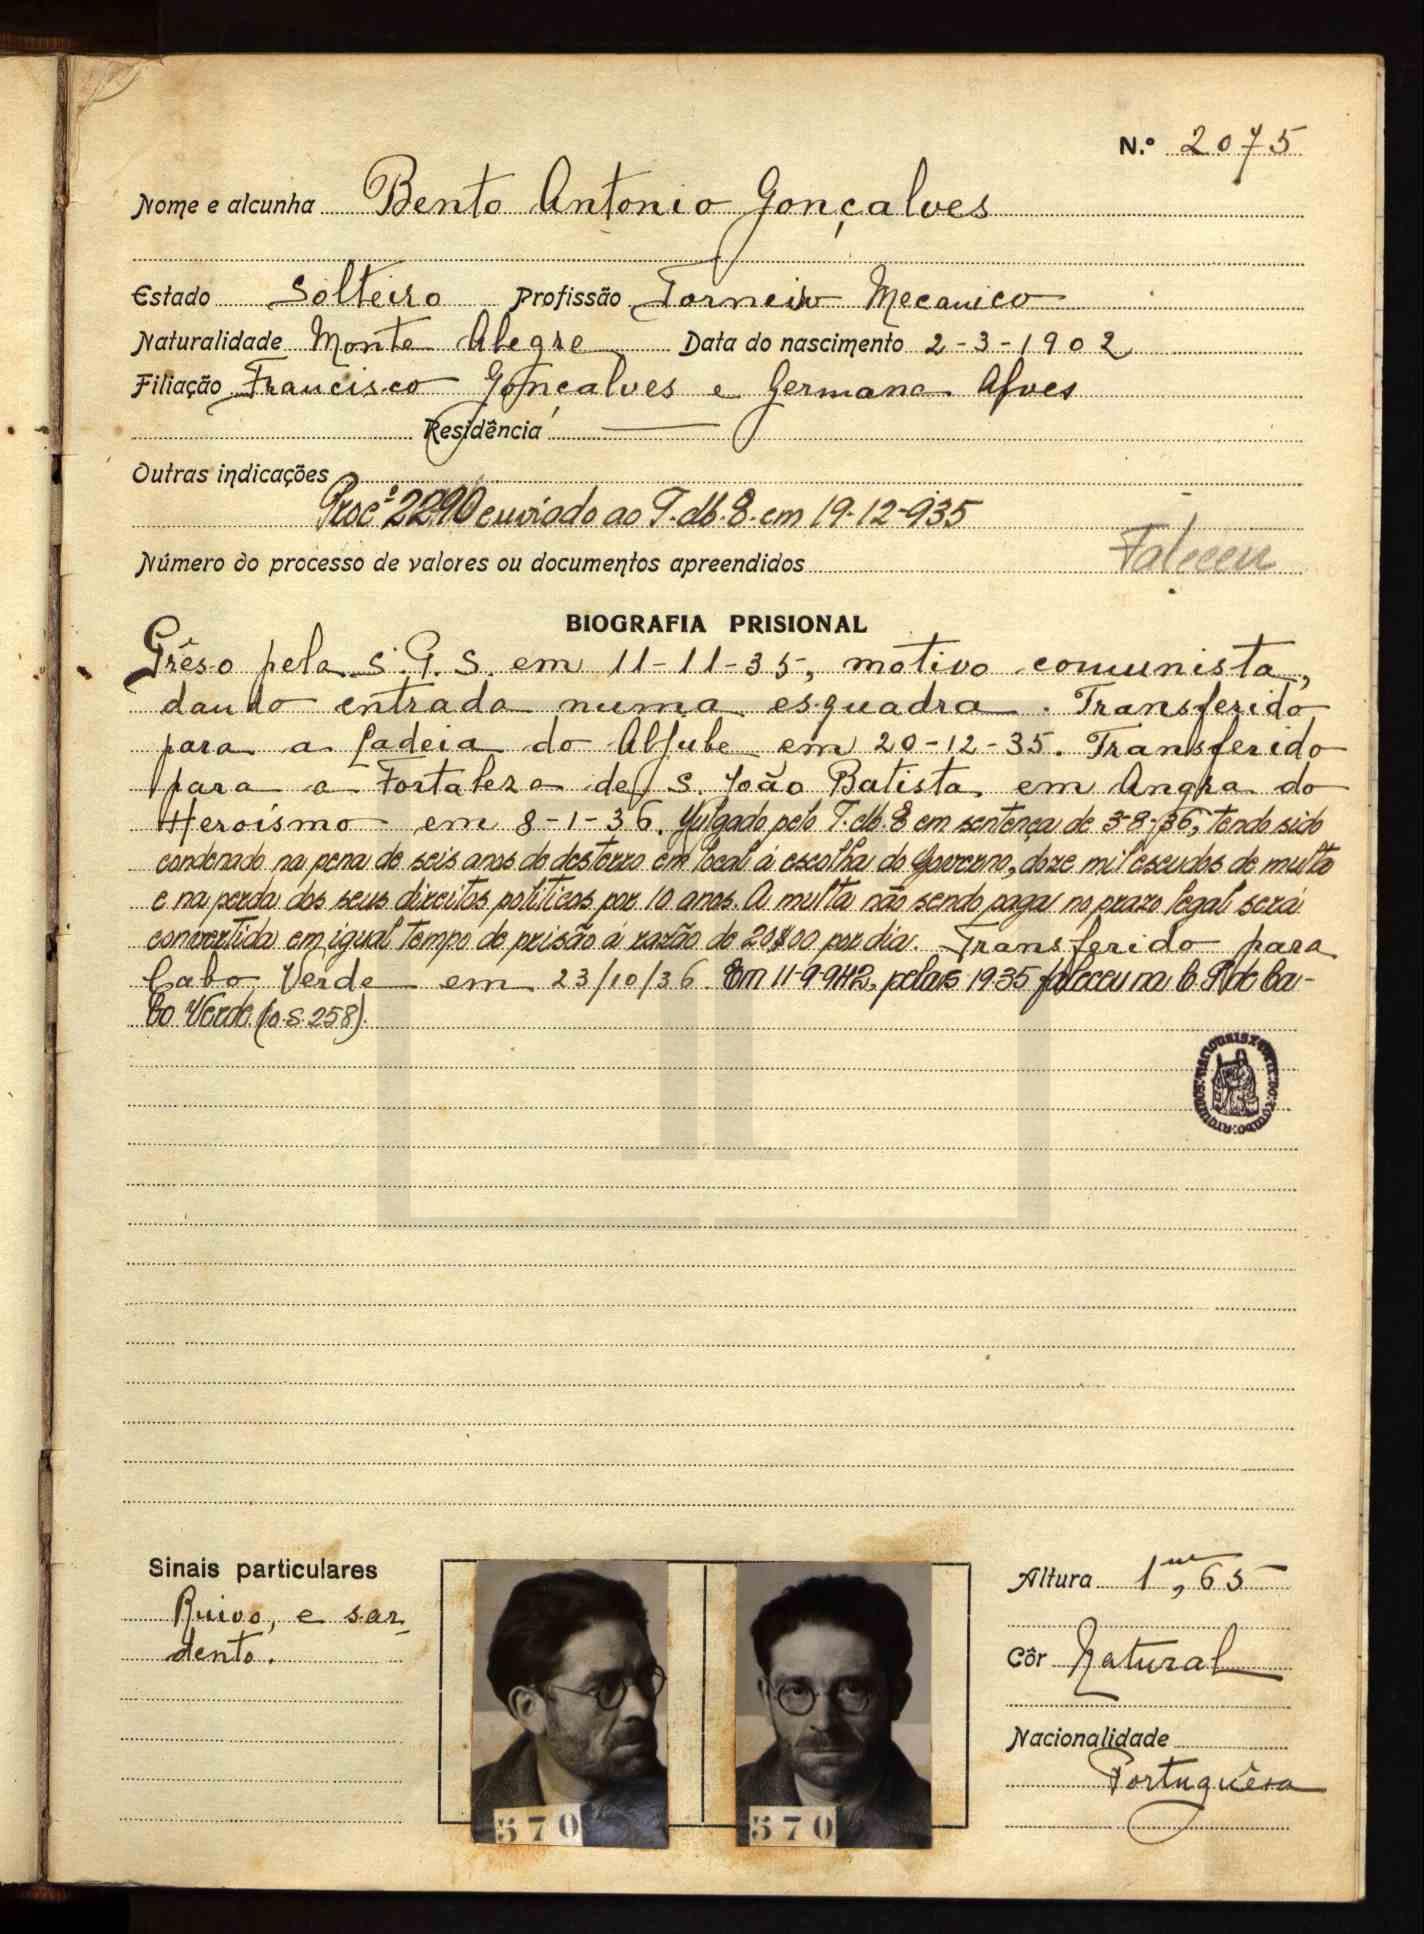 N.º 2075
Nome e alcunha Bento Antonio Gonçalves
Estado Solteiro Profissão Torneiro Mecanico
Naturalidade Monte Alegre Data do nascimento 2-3-1902
Filiação Francisco Gonçalves e Germana Alves
Residência
Outras indicações
Procº 2290 enviado ao T.M.E. em 19-12-935
Número do processo de valores ou documentos apreendidos
Faleceu
BIOGRAFIA PRISIONAL
Prêso pela S.P.S. em 11-11-35, motivo comunista,
dando entrada numa esquadra. Transferido
para a Cadeia do Aljube em 20-12-35. Transferido
para a Fortaleza de S. João Batista em Angra do
Heroísmo em 8-1-36. Julgado pelo T.M.E em sentença de 3-8-36, tendo sido
condenado na pena de seis anos de desterro em local á escolha do Governo, doze mil escudos de multa
e na perda dos seus direitos politicos por 10 anos. A multa não sendo paga no prazo legal será
convertida em igual tempo de prisão á razão de 20$00 por dia. Transferido para
Cabo Verde em 23/10/36. Em 11-9-942, pelas 19.35 faleceu na C. P. de Ca-
bo Verde. (O.S. 258).
Sinais particulares
Ruivo, e sar-
dento.
570
570
Altura 1m,65
Côr Natural
Nacionalidade
Portuguêsa